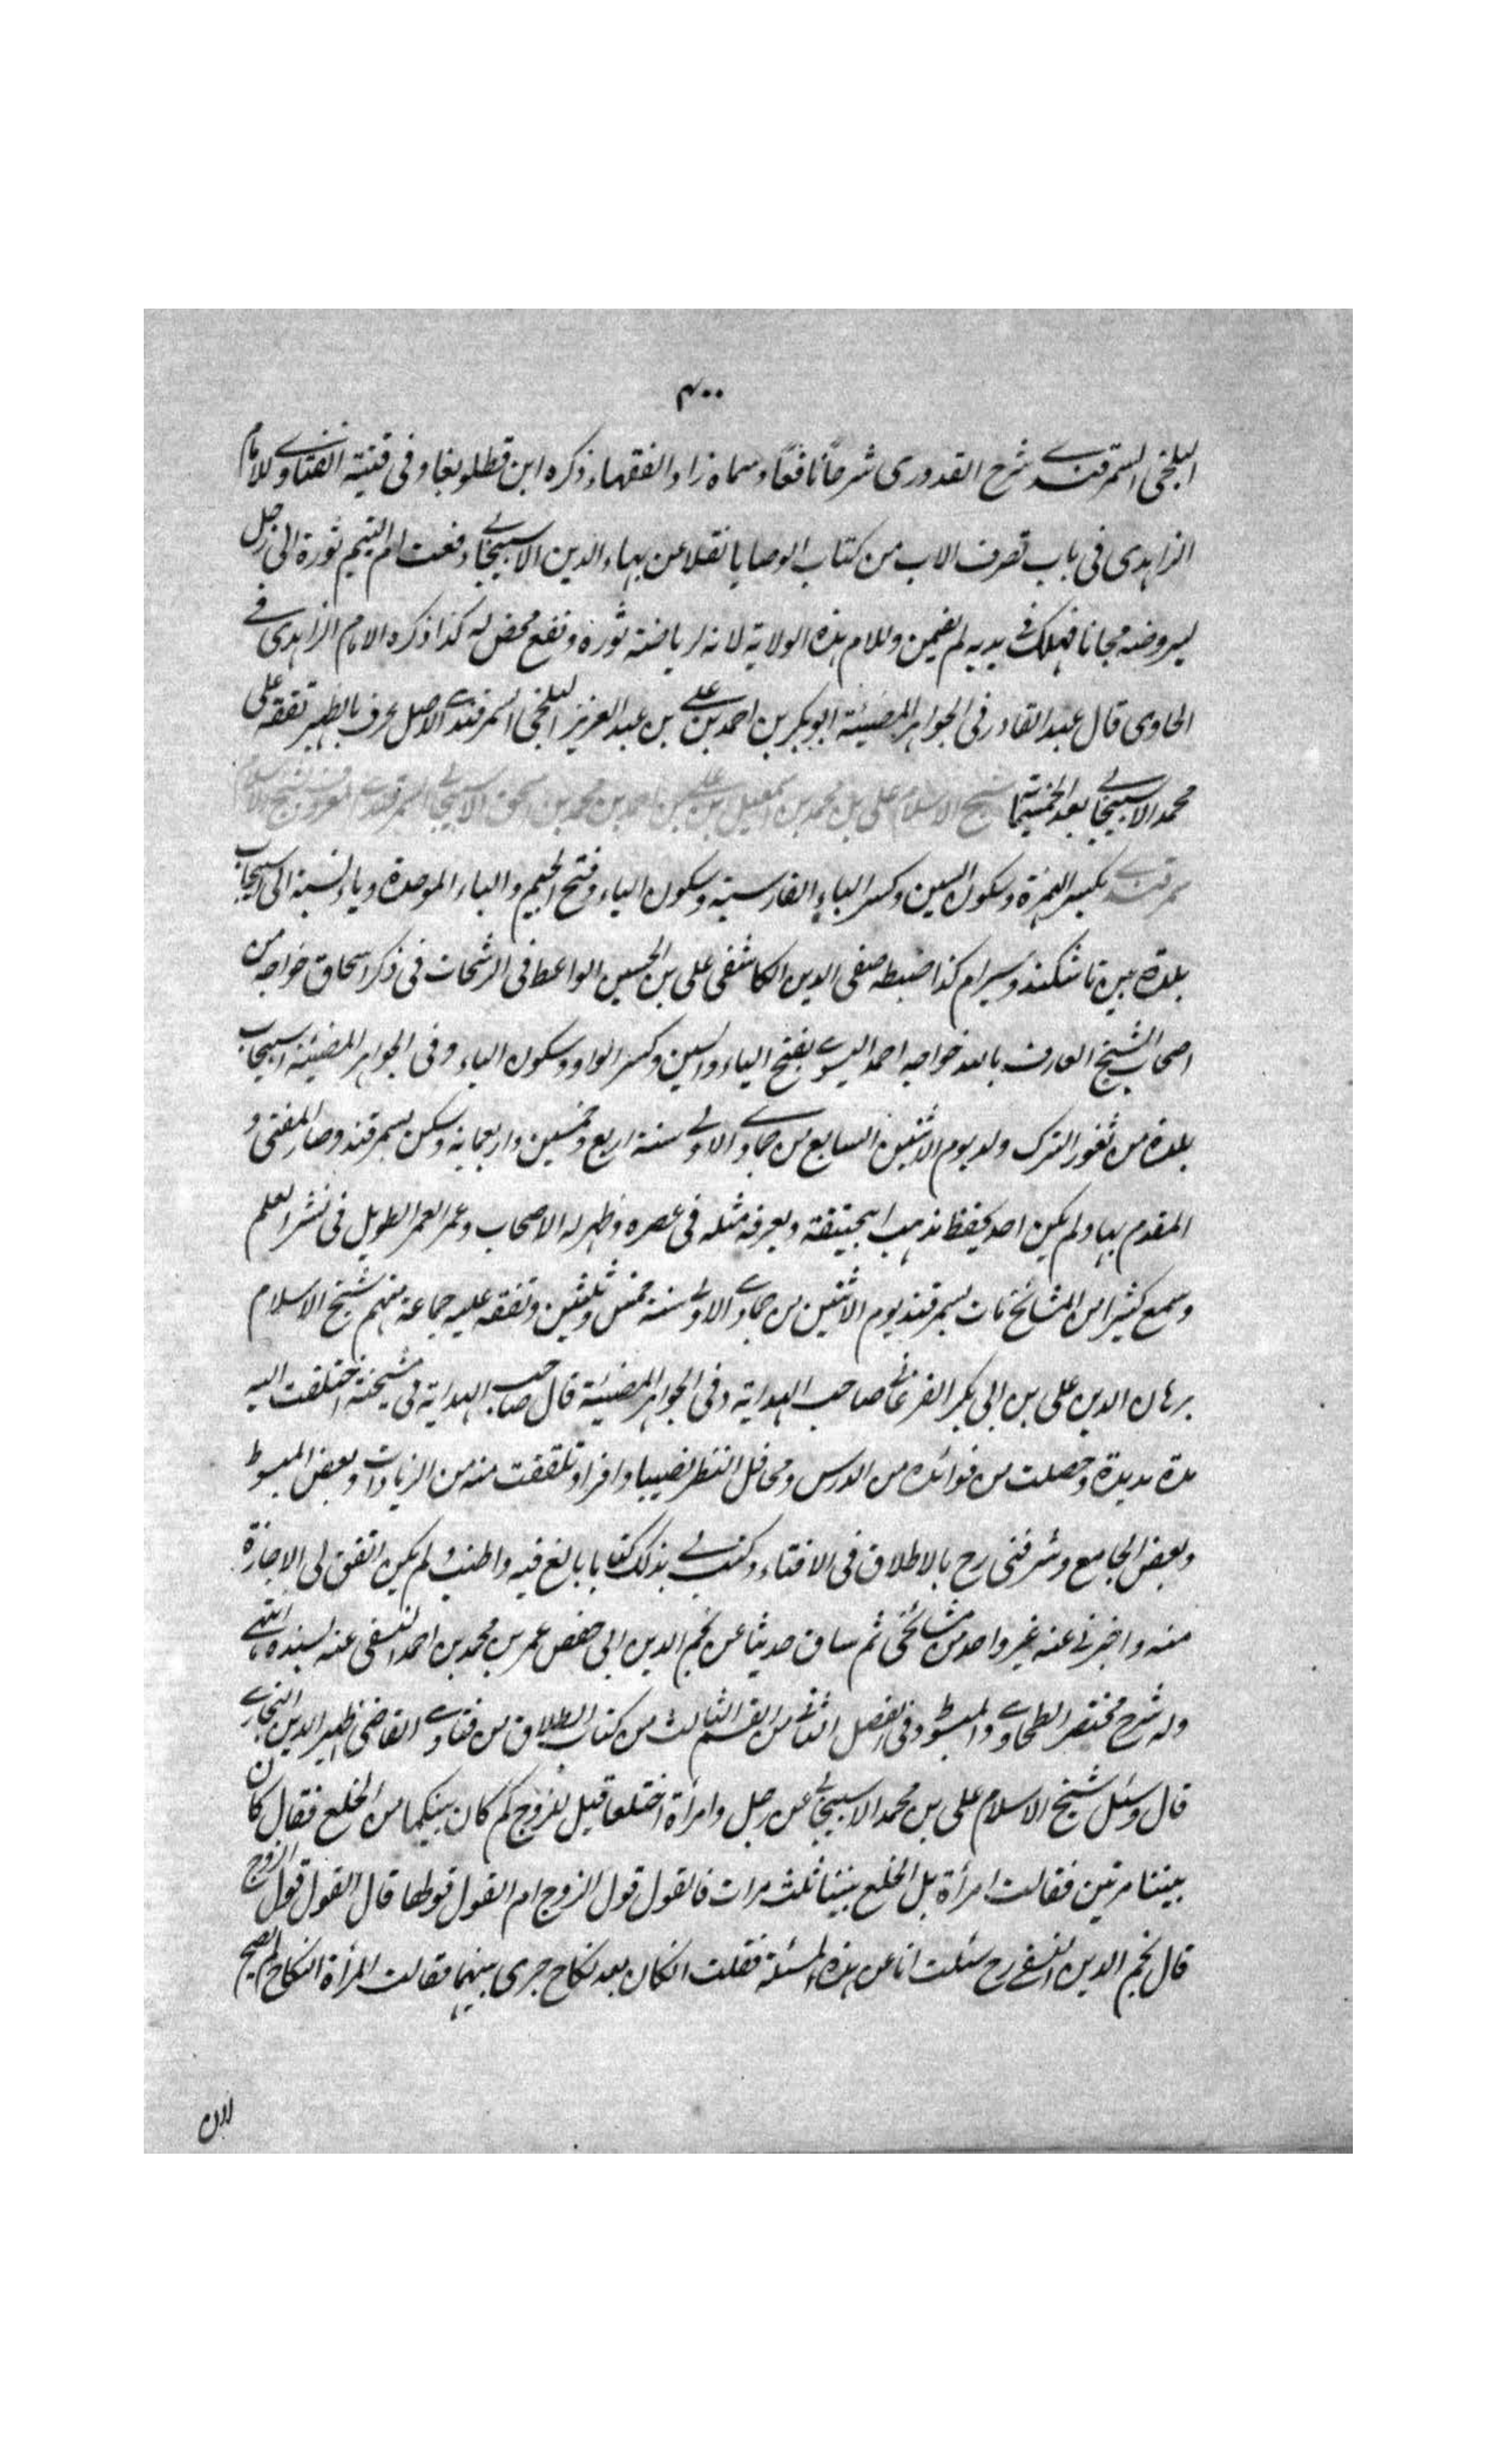 ۴۰۰
البلخى السمرقندے شرح القدورى شرحاً نافعًا وسماه زاد الفقهاء ذكره ابن قطلوبغا وفى قنية الفتاوے للامام
الزاهدى فى باب تصرف الاب من كتاب الوصايا نقلا عن بهاء الدين الاسبيجابے دفعت ام اليتيم ثوره الى رجل
ليروضه مجانا فهلك فے يديه لم يضمن وللام هذه الولاية لانه لرياضة ثوره ونفع محض له كذا ذكره الامام الزاهدى فے
الحاوى قال عبد القادر فى الجواهر المضيئة ابوبكر بن احمد بن علے بن عبد العزيز البلخى السمرقندے الاصل عرف بالظهير تفقه على
محمد الاسبيجابے بعد الخمسمائة شيخ الاسلام على بن محمد بن اسمعيل بن علے بن احمد بن محمد بن اسحق الاسبيجابے السمرقندے المعروف بشيخ الاسلام
سمرقندے بكسر الهمزة وسكون السين وكسر الباء الفارسية وسكون الياء وفتح الجيم والباء الموحدة وياء نسبة الى اسبيجاب
بلدة بين تاشكند وسيرام كذا ضبطه صفى الدين الكاشفى على بن الحسين الواعظ فى الرشحات فى ذكر اسحاق خواجه من
اصحاب الشيخ العارف بالله خواجه احمد اليسوے بفتح الياء والسين وكسر الواو وسكون الياء وفى الجواهر المضيئة اسبيجاب
بلدة من ثغور الترك ولد يوم الاثنين السابع من جمادے الاولے سنة اربع وخمسين واربعماية وسكن بسمرقند وصار المفتى و
المقدم بها ولم يكن احد يحفظ مذهب ابيحنيفة ويعرفه مثله فى عصره وظهر له الاصحاب وعمر العمر الطويل فى نشر العلم
وسمع كثيرا من المشائخ مات بسمرقند يوم الاثنين من جمادے الاولے سنة خمس وثلثين وتفقه عليه جماعة منهم شيخ الاسلام
برهان الدين على بن ابى بكر الفرغانے صاحب الهداية وفى الجواهر المضيئة قال صاحب الهداية فى مشيخته اختلفت اليه
مدة مديدة وحصلت من فوائده من الدرس ومحافل النظر نصيبا وافرا وتلقفت منه من الزيادات وبعض المبسوط
وبعض الجامع وشرفنى رح بالاطلاق فى الافتاء وكتب لے بذلك كتابا بالغ فيه واطنب ولم يكن اتفق لى الاجازة
منه واخبرنے عنه غير واحد من مشائخى ثم ساق حديثا عن نجم الدين ابى حفص عمر بن محمد بن احمد النسفى عنه بسنده انتهے
وله شرح مختصر الطحاوے والمبسوط وفى الفصل الثانے من القسم الثالث من كتاب الطلاق من فتاوے القاضى ظهير الدين البخارے
قال وسئل شيخ الاسلام على بن محمد الاسبيجابے عن رجل وامرأة اختلعا قيل للزوج كم كان بينكما من الخلع فقال كان
بيننا مرتين فقالت امرأة بل الخلع بيننا ثلث مرات فالقول قول الزوج ام القول قولها قال القول قول الزوج
قال نجم الدين النسفے رح سئلت انا عن هذه المسئلة فقلت انكان بعد نكاح جرى بينهما فقالت المرأة النكاح لم يصح
لان